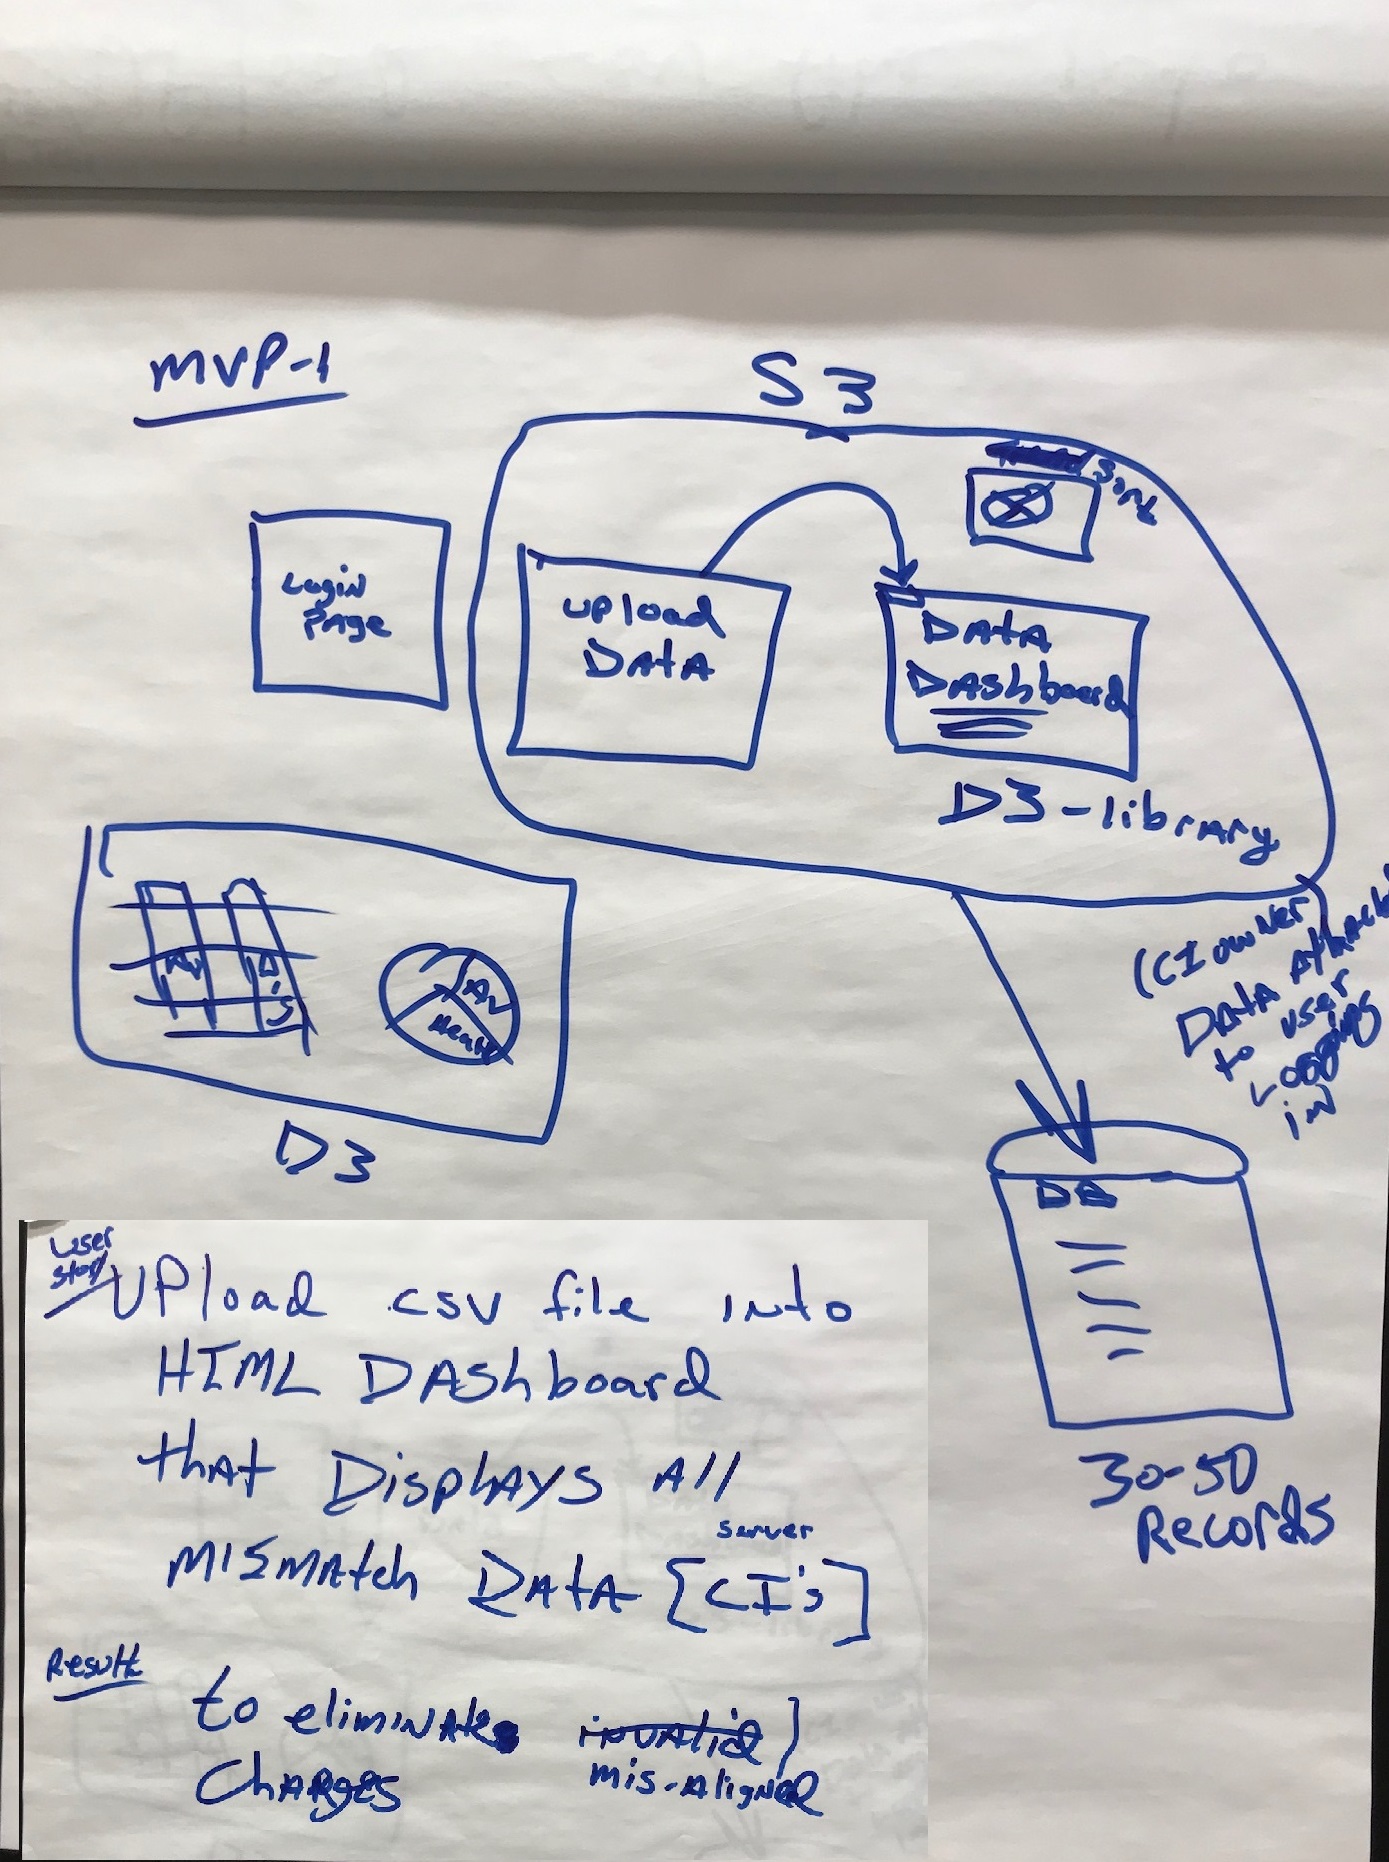 MVP-1
S3
Sort
Login
Page
UPload
DATA
DATA
DAShboard
D3-library
(CI owner
DATA Attached
to user
Logging
in
AV
D3
DB
30-50
Records
User
Story
UPload csv file into
HTML DAShboard
thAt DisplAYS All
server
MISMAtch DAtA [CI's]
Result
to eliminate invalid
mis-Aligned
ChArges